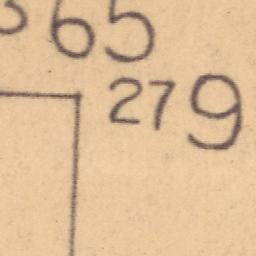 365
279